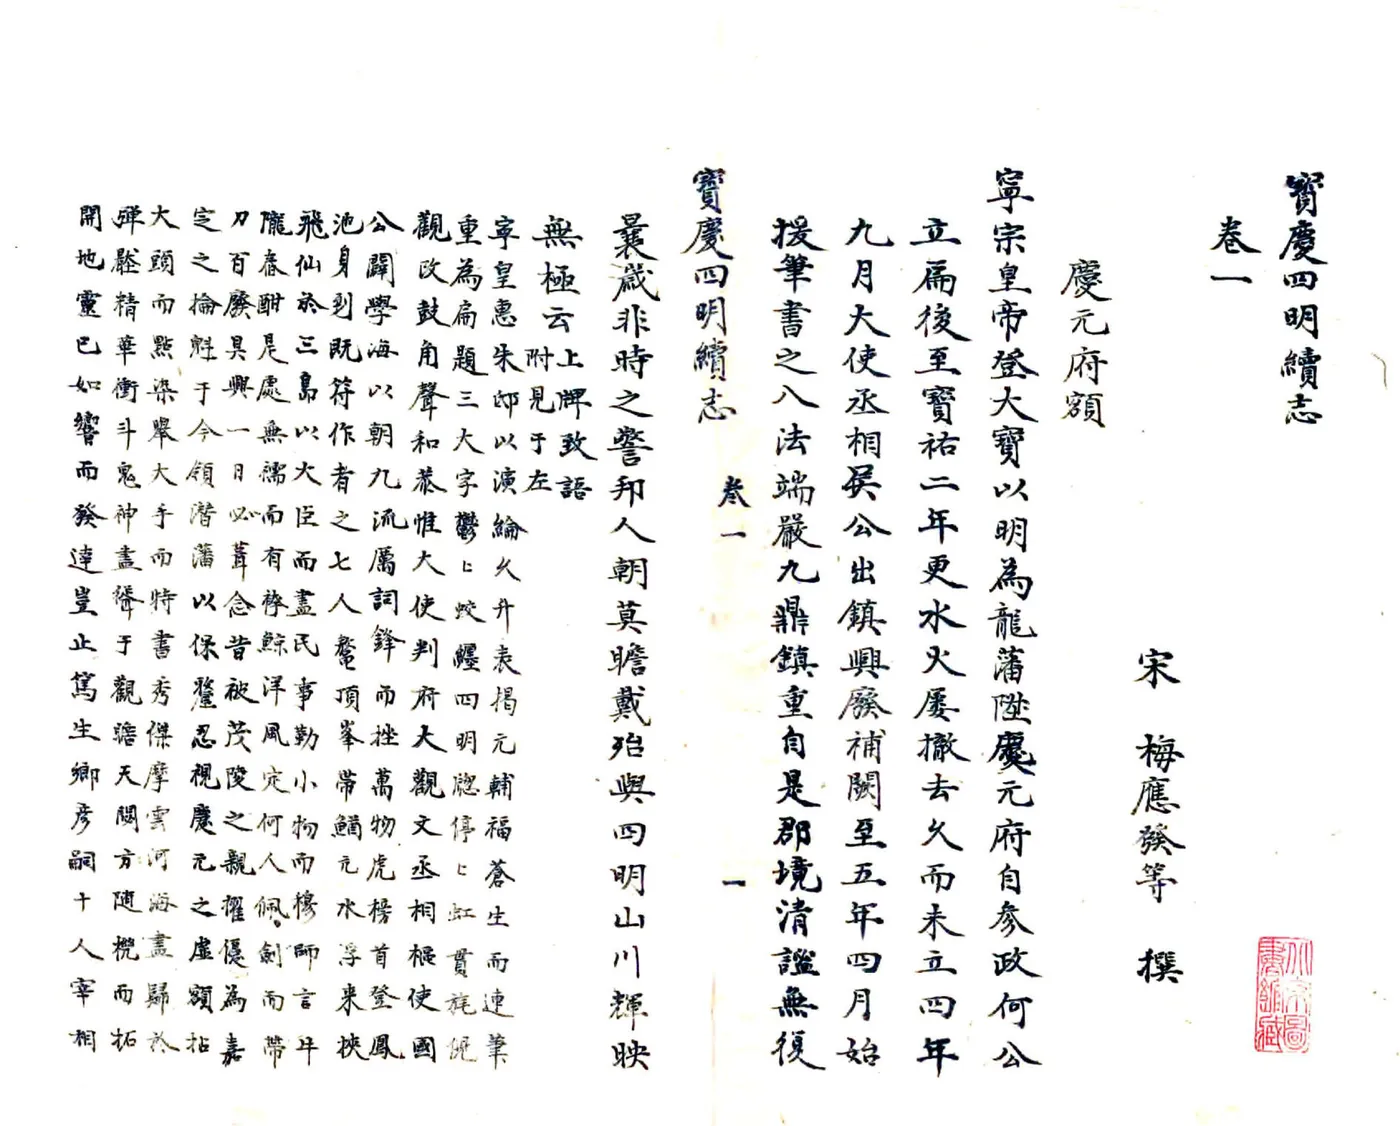 寶慶四明續志
卷一
宋 梅應發等 撰
慶元府額
寧宗皇帝登大寶以明為龍藩陞慶元府自參政何公
立扁後至寶祐二年更水火屡撤去久而未立四年
九月大使丞相吴公出鎮興廢補闕至五年四月始
援筆書之八法端嚴九鼎鎮重自是郡境清謐無復
寶慶四明續志 卷一 一
曩歲非時之警邦人朝莫瞻戴殆與四明山川輝映
無極云上牌致語附見于左
寧皇惠朱邸以演綸久升表揭元輔福蒼生而連筆
重為扁題三大字鬱〻蛟鼉四明牕停〻虹貫旄倪
觀改鼓角聲和恭惟大使判府大觀文丞相樞使國
公闢學海以朝九流厲詞鋒而挫萬物虎榜首登鳳
池身到既符作者之七人鰲頂峯帶鰌元水浮来挾
飛仙於三島以大臣而盡民事勤小物而穆師言年
隴春酣是處無襦而有袴鯨洋風定何人佩劍而帶
刀百廢具興一日必葺念昔被茂陵之親擢優為嘉
定之掄魁于今領潛藩以保釐忍視慶元之虛額拈
大頭而㸃染舉大手而特書秀傑摩雲河海盡歸於
殫髊精華衝斗鬼神盡聳于觀瞻天闢方随機而拓
開地靈已如響而發達豈止篤生鄉彦嗣十人宰相
京圖
藏